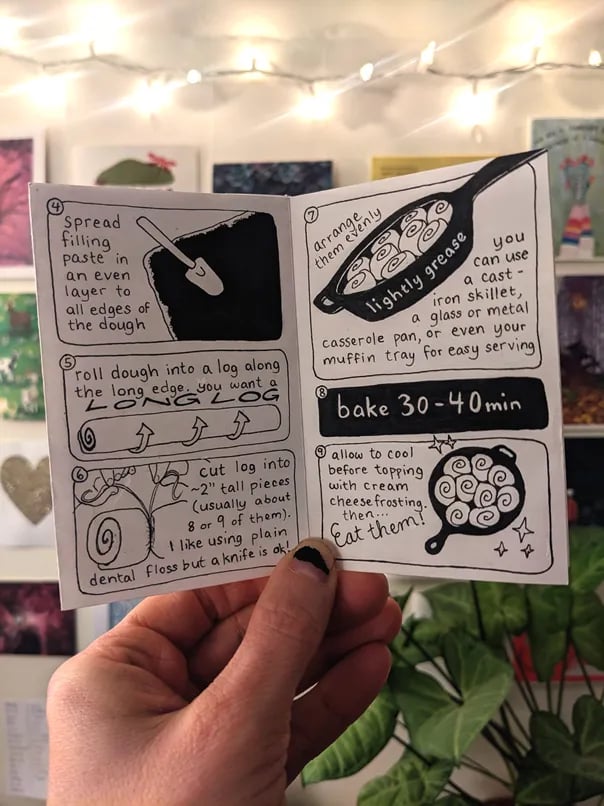 4
spread
filling
paste in
an even
layer to
all edges of
the dough
5
roll dough into a log along
the long edge. you want a
LONG LOG
6
cut log into
~2" tall pieces
(usually about
8 or 9 of them).
I like using plain
dental floss but a knife is ok!
7
arrange
them evenly
lightly grease
you
can use
a cast-
iron skillet,
a glass or metal
casserole pan, or even your
muffin tray for easy serving
8
bake 30-40min
9
allow to cool
before topping
with cream
cheese frosting.
then...
Eat them!